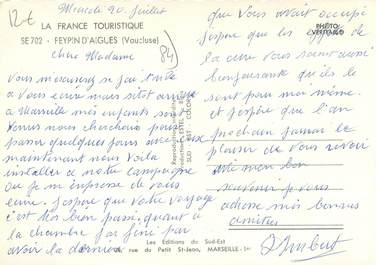 12€
Mercredi 20 Juillet
LA FRANCE TOURISTIQUE
SE 702 - FEYPIN D'AIGUES (Vaucluse)
84
Chère Madame
Vous m'excuserez si j'ai tardé
a vous ecrire mais sitot arrivée
a Marseille mes enfants sont
venus nous chercher pour
passer quelques jours avec eux
maintenant nous voila
installer a notre campagne
ou je m'empresse de vous
ecrire. J'espere que votre voyage
c'est très bien passé, quant a
la chambre j'ai fini par
avoir la dernière
que vous avait occupé
J'espere que les
de la cure vous seront aussi
bienfaisante qu'ils le
sont pour moi même.
et j'espère que l'an
prochain j'aurai le
plaisir de vous revoir
mon bon
souvenir je vous
adresse mes bonnes
amitiés
PHOTO
VÉRITABLE
SUD - EST - COLOR
Les Editions du Sud-Est
rue du Petit St-Jean, MARSEILLE-1er